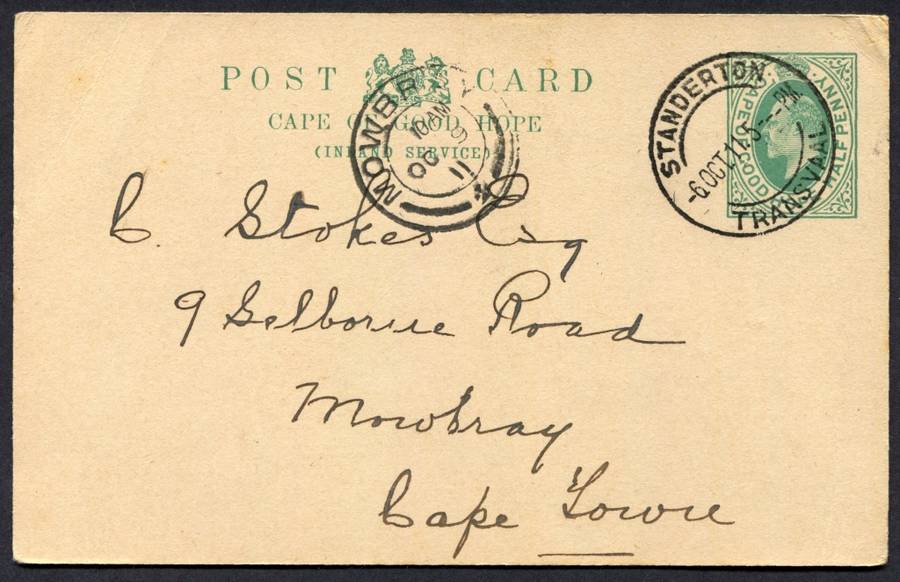 POST CARD
CAPE OF GOOD HOPE
(INLAND SERVICE)
MOWBRAY
10 AM
OC 9
11
STANDERTON
-6 OCT 11.5 -- PM
TRANSVAAL
CAPE OF GOOD
HALF PENNY
C. Stokes Esq
9 Selborne Road
Mowbray
Cape Town